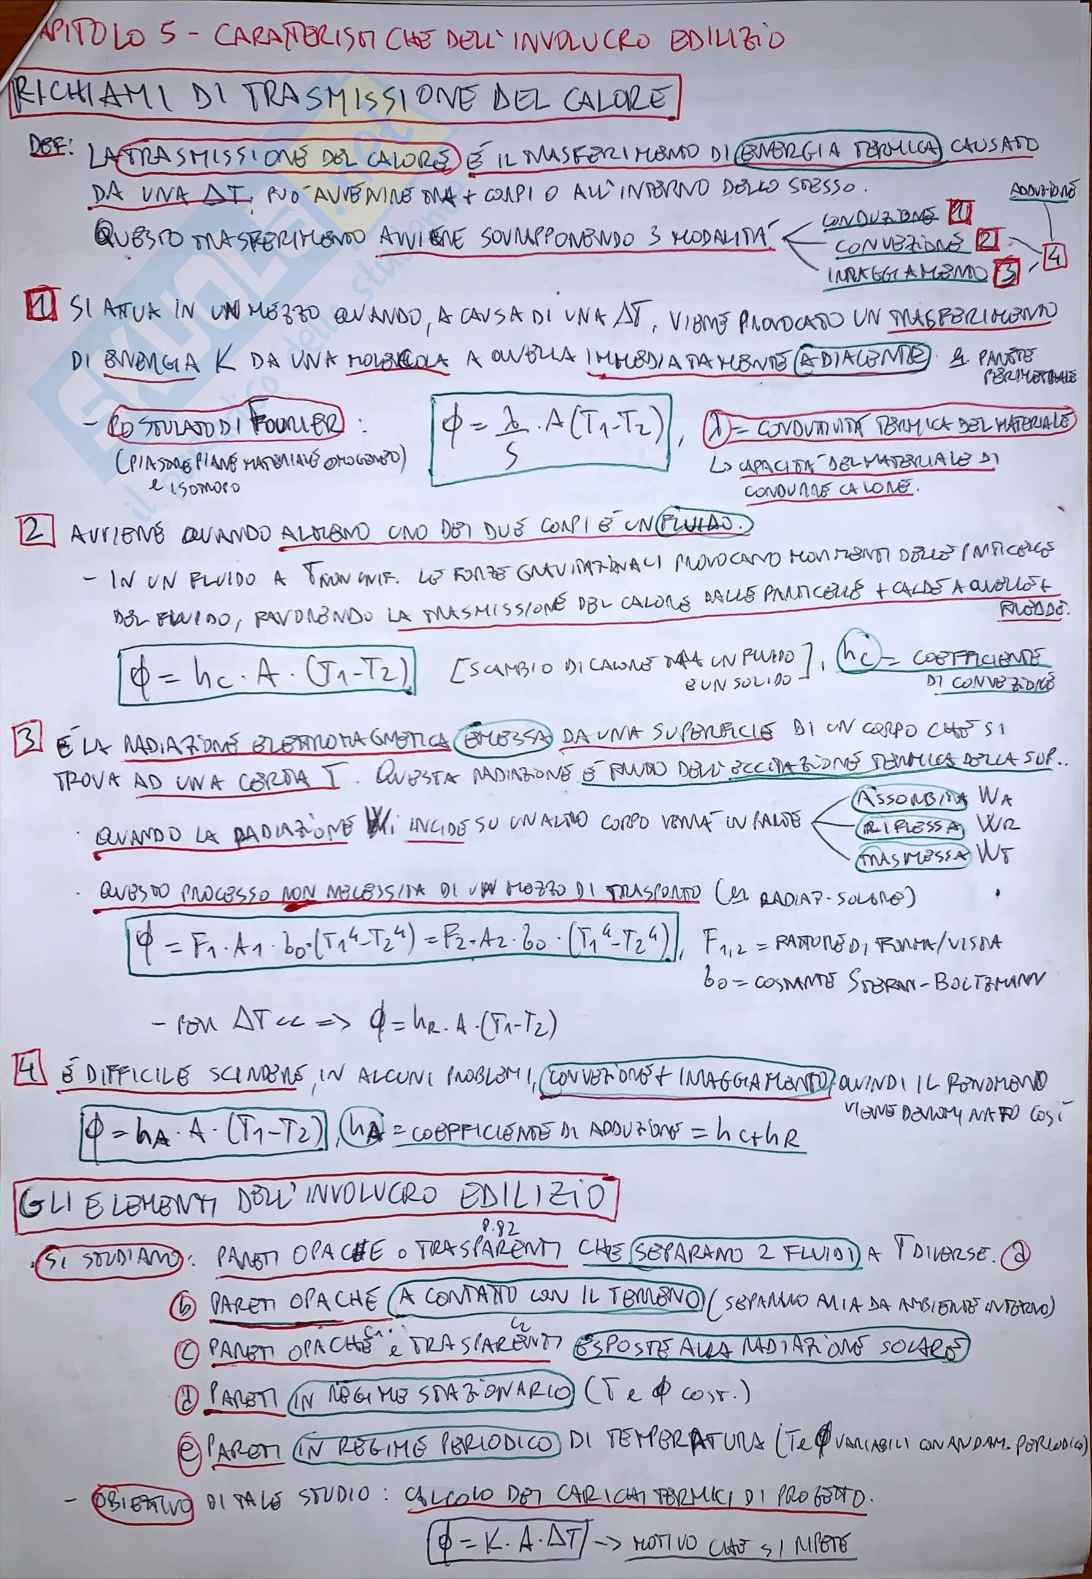 CAPITOLO 5 - CARATTERISTICHE DELL'INVOLUCRO EDILIZIO
RICHIAMI DI TRASMISSIONE DEL CALORE
DEF: LA TRASMISSIONE DEL CALORE È IL TRASFERIMENTO DI ENERGIA TERMICA CAUSATO
DA UNA ΔT, PUÒ AVVENIRE TRA + CORPI O ALL'INTERNO DELLO STESSO.
QUESTO TRASFERIMENTO AVVIENE SOVRAPPONENDO 3 MODALITÀ
CONDUZIONE 1
CONVEZIONE 2
IRRAGGIAMENTO 3
ADDUZIONE
4
1 SI ATTUA IN UN MEZZO QUANDO, A CAUSA DI UNA ΔT, VIENE PROVOCATO UN TRASFERIMENTO
DI ENERGIA K DA UNA MOLECOLA A QUELLA IMMEDIATAMENTE ADIACENTE. ES PARETE
PERIMETRALE
- POSTULATO DI FOURIER :
(PIASTRE PIANE MATERIALE OMOGENEO)
e ISOTROPO
ϕ = λ/S · A (T1-T2) , λ = CONDUTTIVITÀ TERMICA DEL MATERIALE
↳ CAPACITÀ DEL MATERIALE DI
CONDURRE CALORE.
2 AVVIENE QUANDO ALMENO UNO DEI DUE CORPI È UN FLUIDO.
- IN UN FLUIDO A T NON UNIF. LE FORZE GRAVITAZIONALI PROVOCANO MOVIMENTI DELLE PARTICELLE
DEL FLUIDO, FAVORENDO LA TRASMISSIONE DEL CALORE DALLE PARTICELLE + CALDE A QUELLE +
FREDDE.
ϕ = hc · A · (T1-T2) [SCAMBIO DI CALORE TRA UN FLUIDO
E UN SOLIDO], hc = COEFFICIENTE
DI CONVEZIONE
3 È LA RADIAZIONE ELETTROMAGNETICA EMESSA DA UNA SUPERFICIE DI UN CORPO CHE SI
TROVA AD UNA CERTA T. QUESTA RADIAZIONE È FRUTTO DELL'ECCITAZIONE TERMICA DELLA SUP..
· QUANDO LA RADIAZIONE Wi INCIDE SU UN ALTRO CORPO VERRÀ IN PARTE
ASSORBITA WA
RIFLESSA WR
TRASMESSA WT
· QUESTO PROCESSO NON NECESSITA DI UN MEZZO DI TRASPORTO (ES RADIAZ. SOLARE)
ϕ = F1 · A1 · b0 · (T1⁴-T2⁴) = F2 · A2 · b0 · (T1⁴-T2⁴), F1,2 = FATTORE DI FORMA/VISTA
b0 = COSTANTE STEFAN-BOLTZMANN
- PER ΔT << => ϕ = hR · A · (T1-T2)
4 È DIFFICILE SCINDERE, IN ALCUNI PROBLEMI, CONVEZIONE + IRRAGGIAMENTO, QUINDI IL FENOMENO
VIENE DENOMINATO COSÌ
ϕ = hA · A · (T1-T2) , hA = COEFFICIENTE DI ADDUZIONE = hc+hR
GLI ELEMENTI DELL'INVOLUCRO EDILIZIO
P.82
· SI STUDIANO : PARETI OPACHE O TRASPARENTI CHE SEPARANO 2 FLUIDI A T DIVERSE. a
b PARETI OPACHE A CONTATTO CON IL TERRENO (SEPARANO ARIA DA AMBIENTE INTERNO)
c PARETI OPACHE e TRASPARENTI ESPOSTE ALLA RADIAZIONE SOLARE
d PARETI IN REGIME STAZIONARIO (T e ϕ COST.)
e PARETI IN REGIME PERIODICO DI TEMPERATURA (T e ϕ VARIABILI CON ANDAM. PERIODICO)
- OBIETTIVO DI TALE STUDIO : CALCOLO DEI CARICHI TERMICI DI PROGETTO.
ϕ = K · A · ΔT -> MOTIVO CHE SI RIPETE